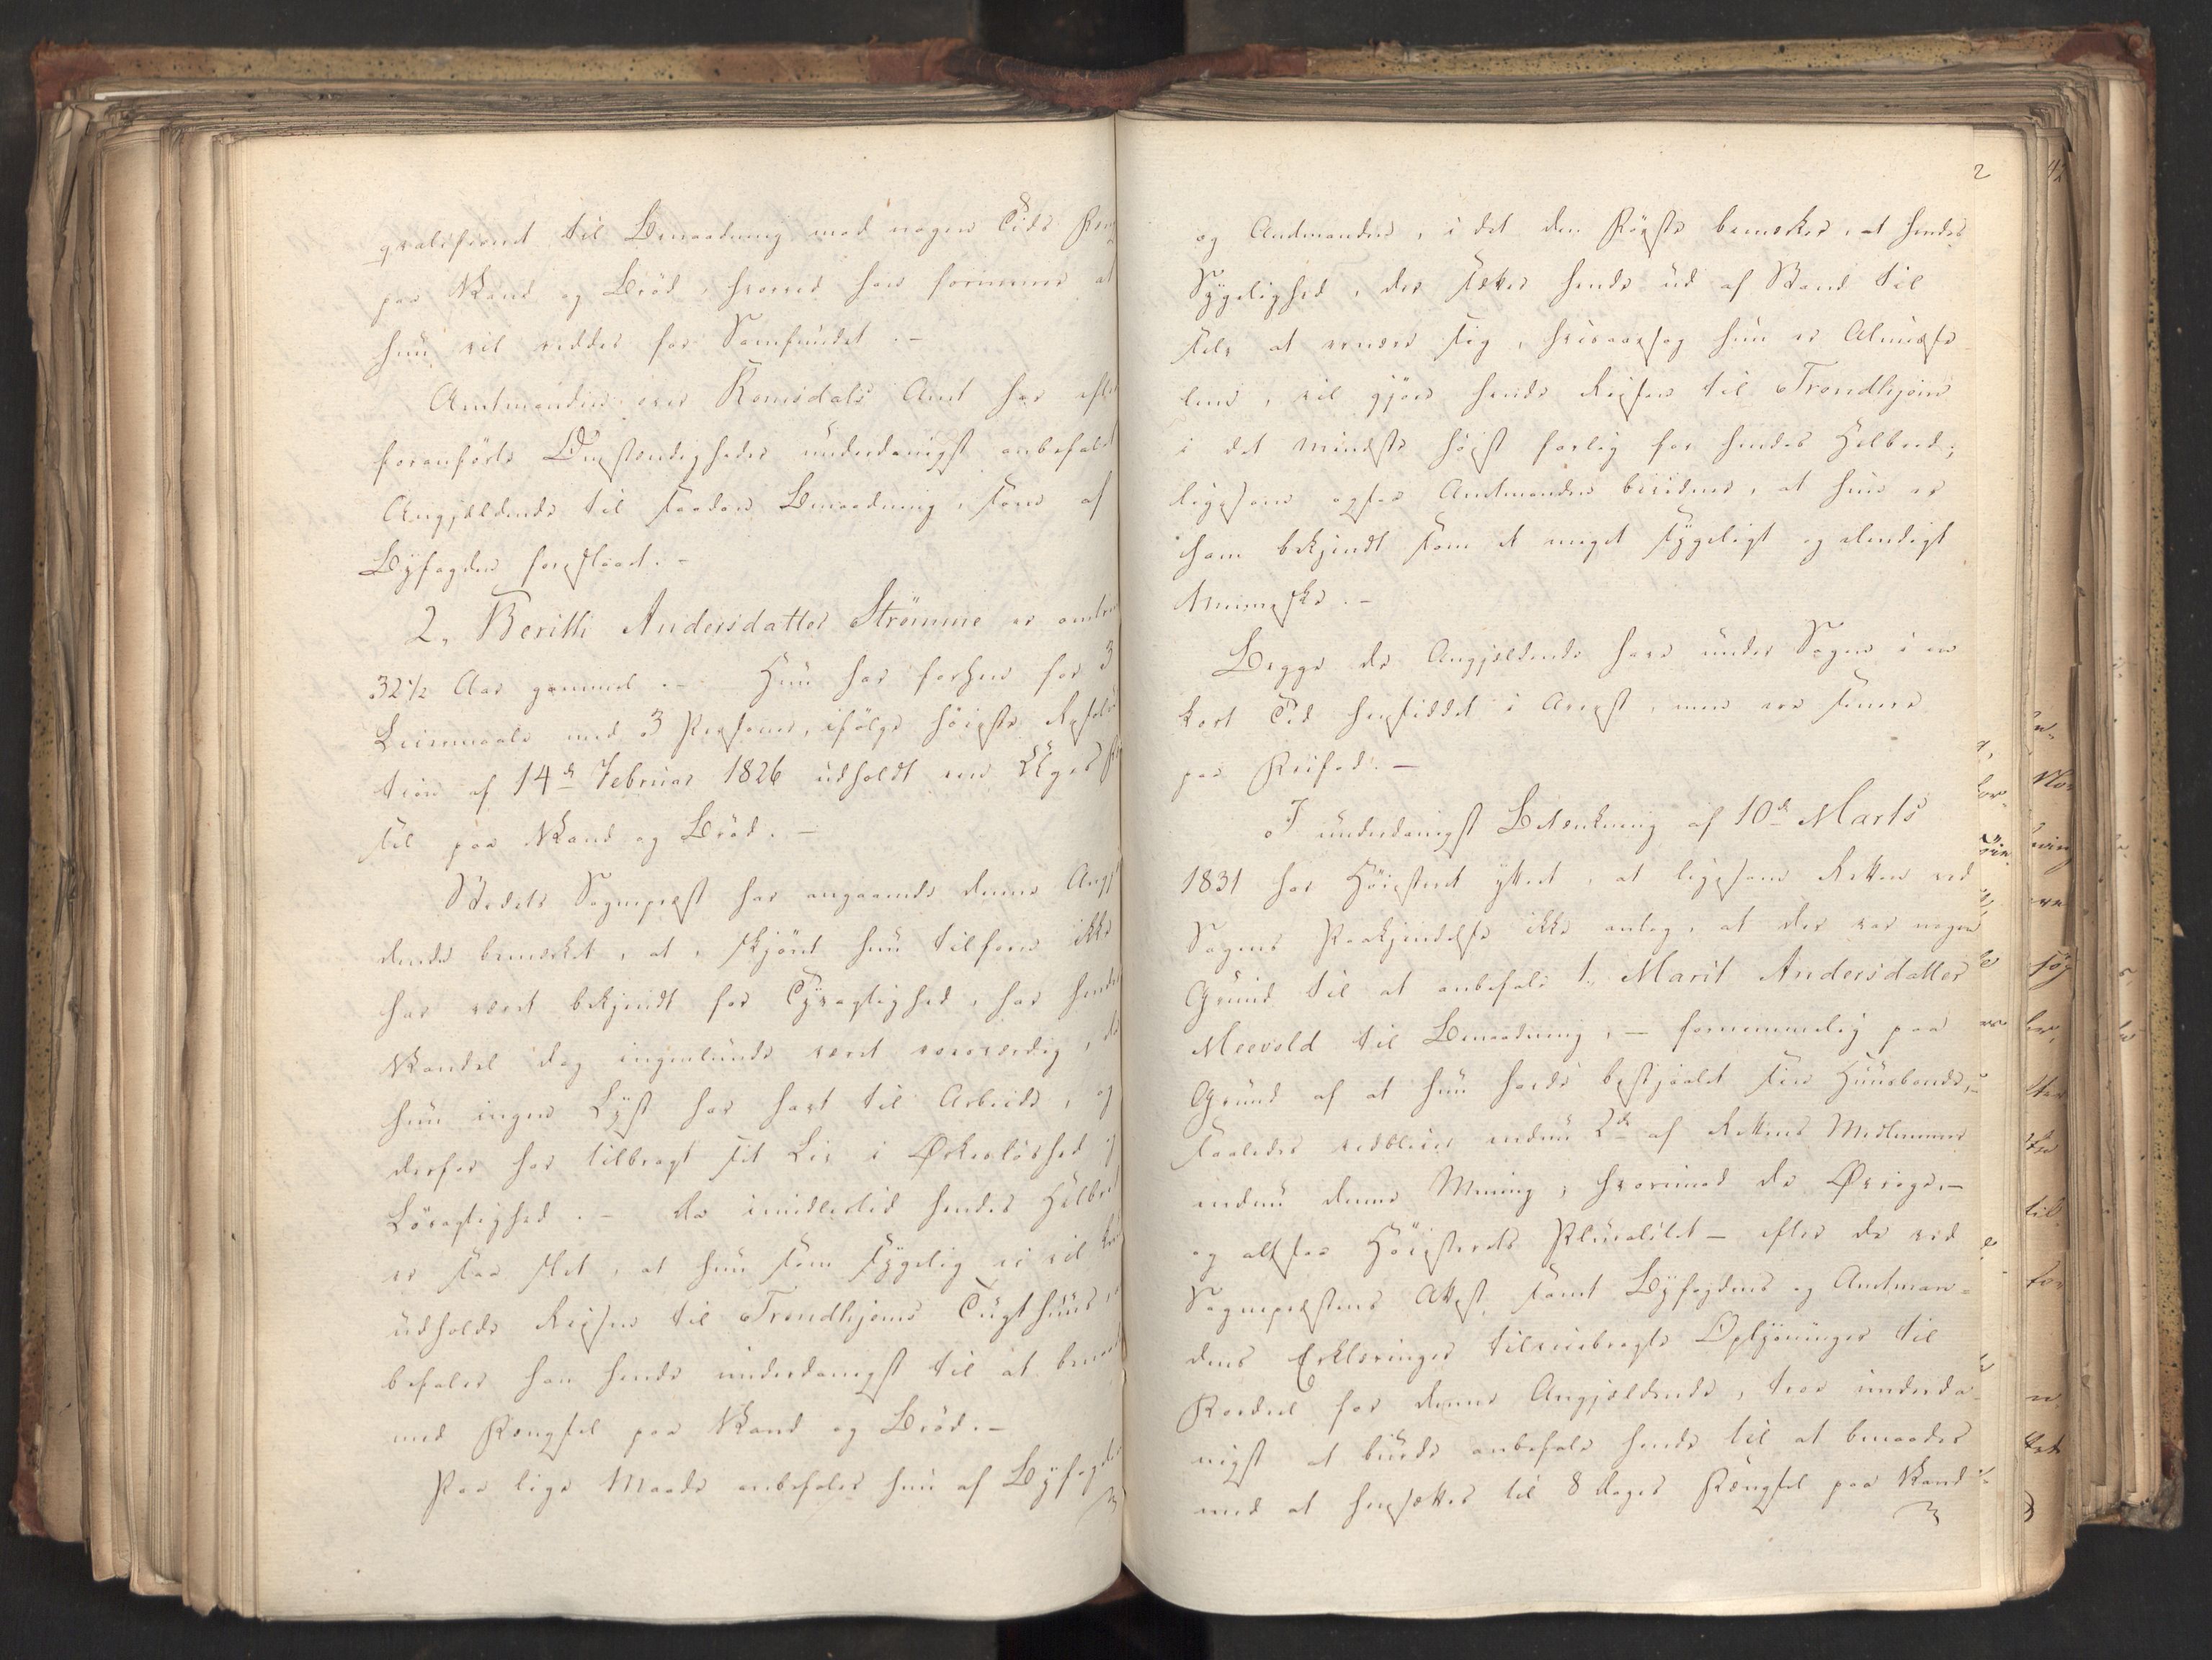 qvalificeret til Benaadning med nogen Tids Fæng
paa Vand og Bröd, hvorved han formener at
hun vil reddes for Samfundet. -
Amtmanden over Romsdals Amt har efter
foranförte Omstændigheder underdanigst anbefalet
Angjældende til saadan Benaadning, som af
Byfogden foreslaaet. -
2, Berithe Andersdatter Strömme er omtre
32 1/2 Aar gammel. - Hun har forhen for 3
Leiermaale med 3 Personer, ifölge höieste Resolu
tion af 14de Februar 1826 udholdt en Uges Fæ
sel paa Vand og Bröd. -
Stedets Sognepræst har angaaende denne Angjæ
dende bemærket, at, skjönt hun tilforn ikke
har været bekjendt for Tyvagtighed, har hendes
Vandel dog ingenlunde været roesværdig, da
hun ingen Lyst har havt til Arbeide, og
derfor har tilbragt sit Liv i Ørkeslöshed og
Lösagtighed. - Da imidlertid hendes Helbred
er saa slet, at hun som sygelig ei vil kun
udholde Reisen til Trondhjems Tugthuus,
befaler han hende underdanigst til at benaad
med Fængsel paa Vand og Bröd. -
Paa lige Maade anbefales hun af Byfogden
2
og Amtmanden, i det den Förste bemærker, at hendes
Sygelighed, der sætter hende ud af Stand til
selv at ernære sig, hvisaarsag hun er Almisse
lem, vil gjöre hende Reisen til Trondhjem
i det mindste höist farlig for hendes Helbred;
ligesom ogsaa Amtmanden bevidner, at hun er
ham bekjendt som et meget sygeligt og elendigt
Menneske. -
Begge de Angjældende have under Sagen i en
kort Tid hensiddet i Arrest, men ere senere
paa Friefod. -
I underdanigst Betænkning af 10de Marts
1831 har Höiesteret yttret, at ligesom Retten ved
Sagens Paakjendelse ikke antog, at der var nogen
Grund til at anbefale 1., Marit Andersdatter
Meevold til Benaadning, - fornemmelig paa
Grund af at hun havde bestjaalet sin Huusbonde, -
saaledes vedbliver endnu 2de af Rettens Medlemmer
endnu denne Mening; hvorimod de Øvrige, -
og altsaa Höiesterets Pluralitet - efter de ved
Sognepræstens Attest samt Byfogdens og Amtman=
dens Erklæringer tilveiebragte Oplysninger til
Fordeel for denne Angjældende, troe underda=
nigst at burde anbefale hende til at benaades
med at hensættes til 8 dages Fængsel paa Vand